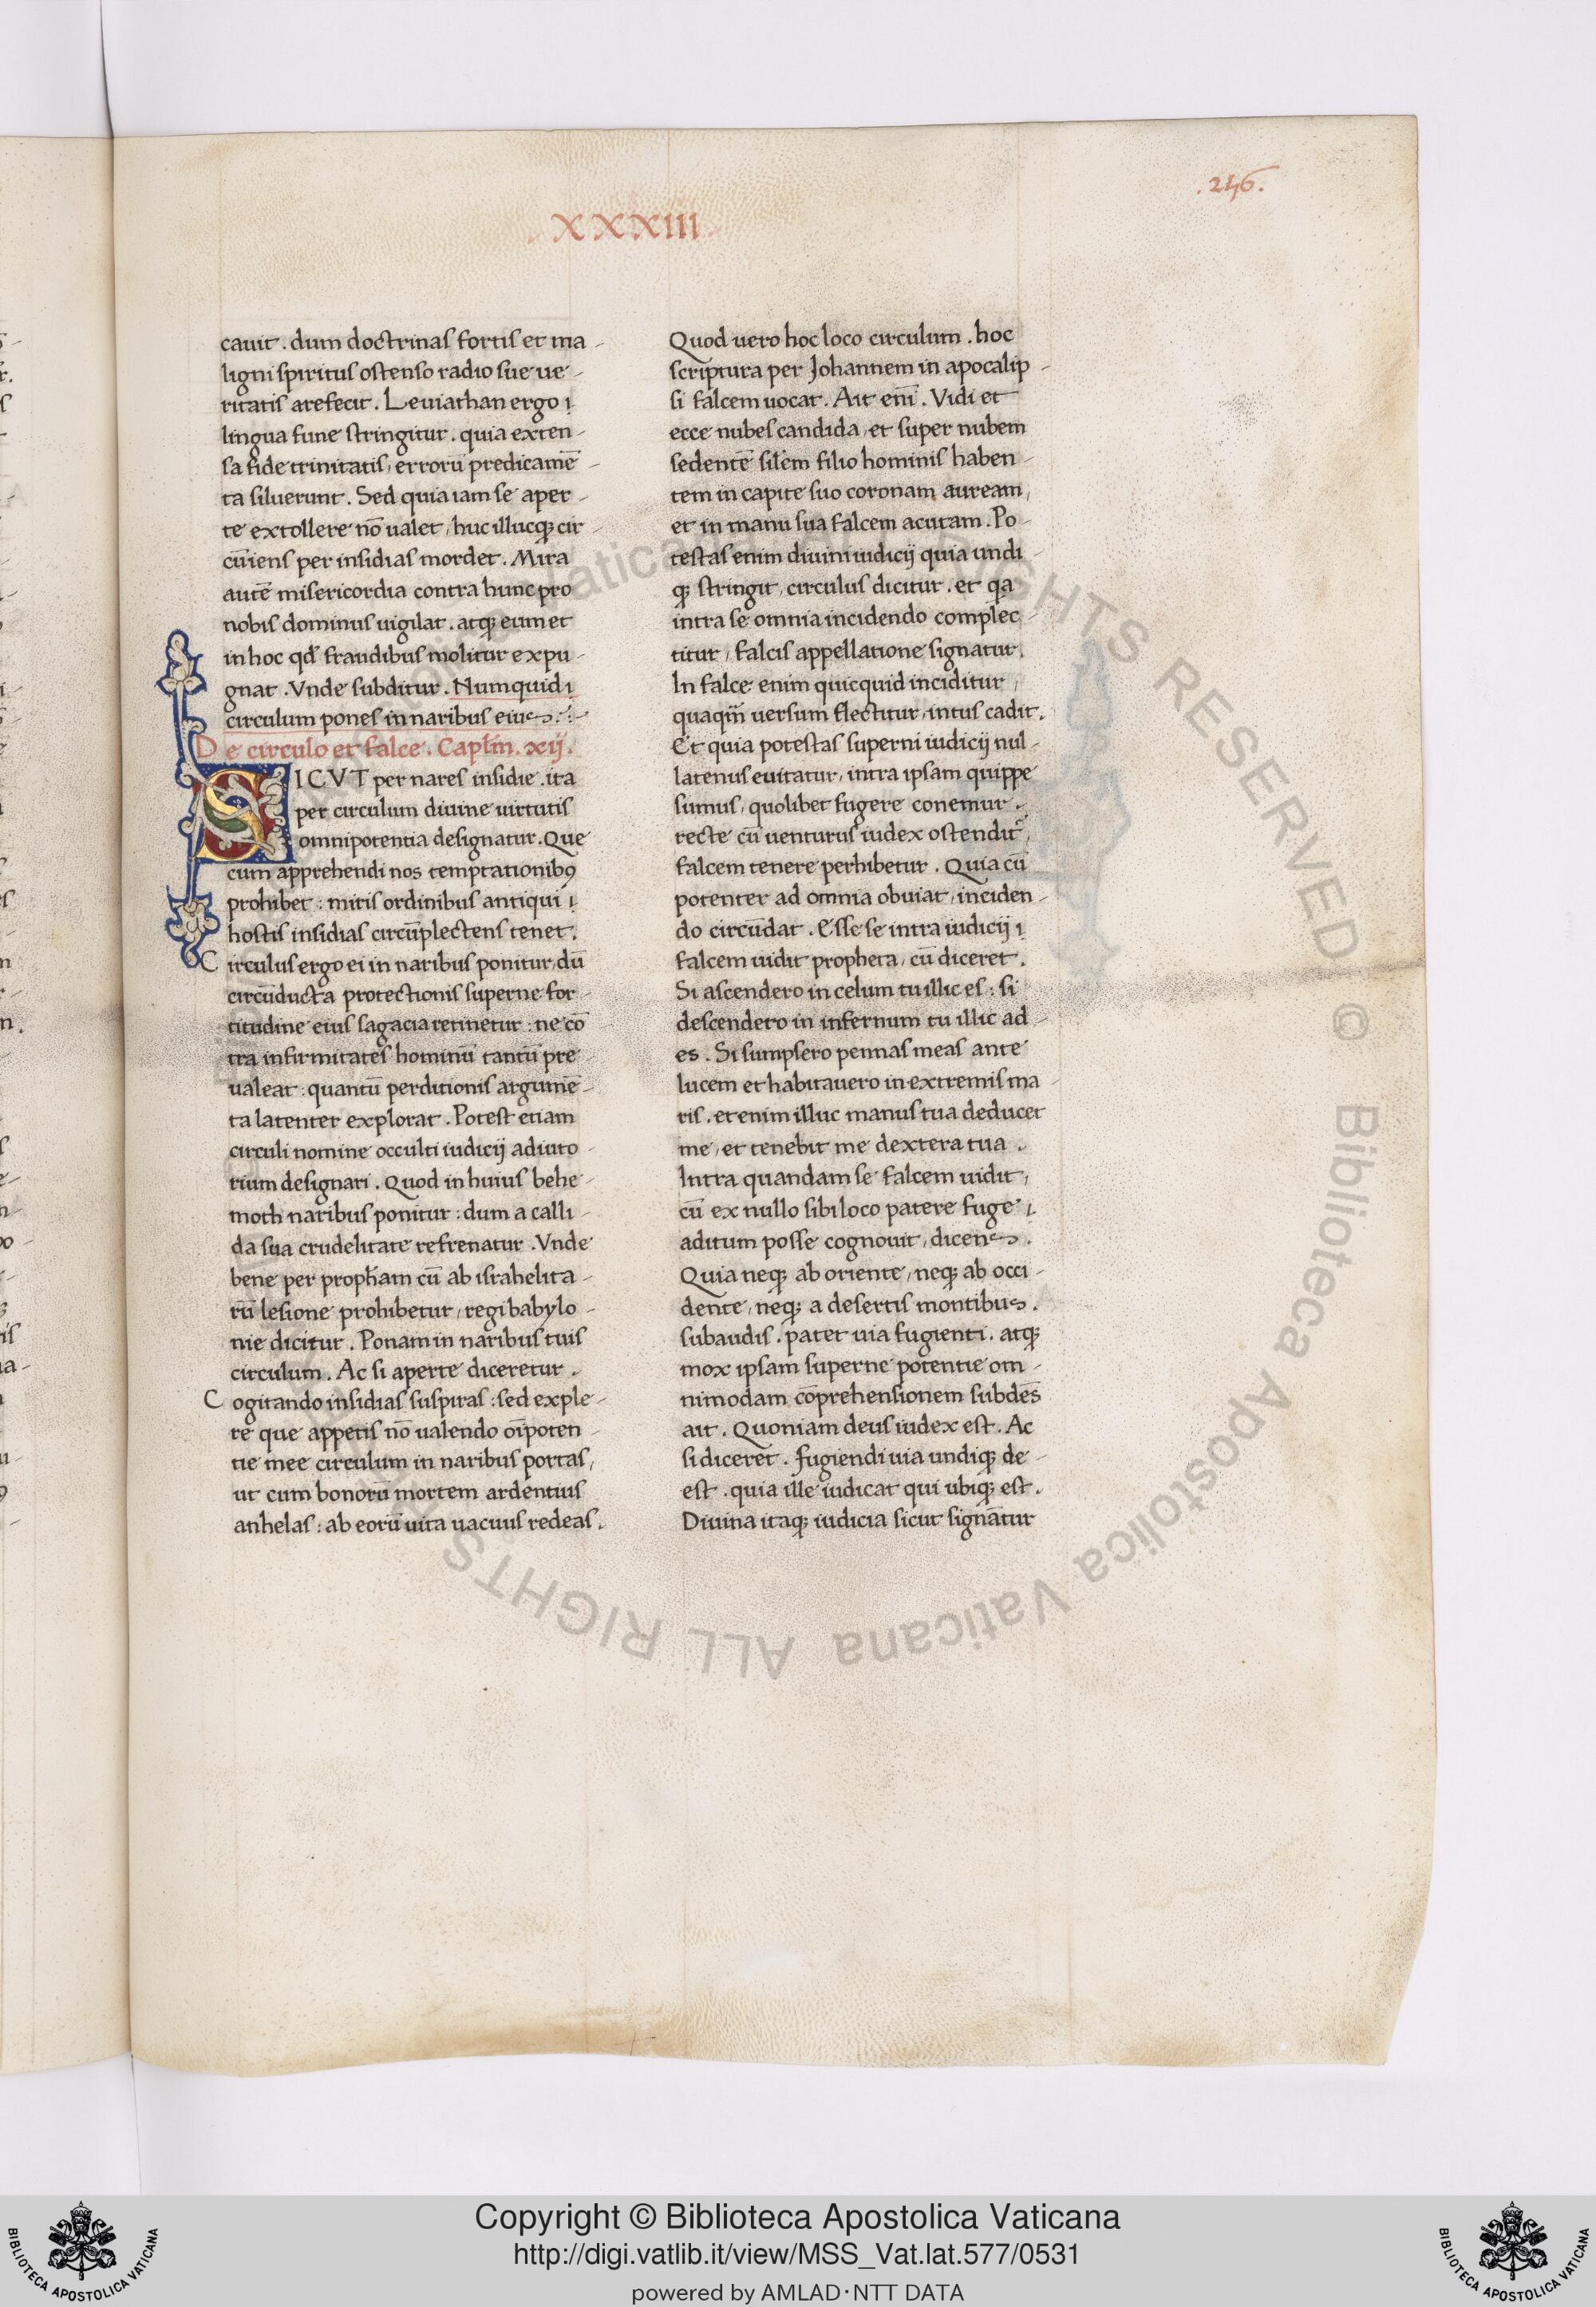 .246.
XXXIII
cauit . dum doctrinas fortis et ma-
ligni spiritus ostenso radio sue ue-
ritatis arefecit . Leuiathan ergo ı
lingua fune stringitur . quia exten-
sa fide trinitatis, erroru᷑ predicame᷑-
ta siluerunt . Sed quia iam se aper-
te extollere nō ualet, huc illucqꝫ cir-
cūiens per insidias mordet . Mira
autē misericordia contra hunc pro
nobis dominus uigilat . atqꝫ eum et
in hoc qđ fraudibus molitur expu-
gnat . Vnde subditur . Numquid ı
circulum pones in naribus eius .
De circulo et falce . Capłm . xij .
SICVT per nares insidie . ita
per circulum diuine uirtutis
omnipotentia designatur . Que
cum apprehendi nos temptationibꝯ
prohibet : miris ordinibus antiqui ı
hostis insidias circūplectens tenet .
Circulus ergo ei in naribus ponitur, dū
circūducta protectionis superne for-
titudine eius sagacia retinetur : ne cō
tra infirmitates hominū tantū pre
ualeat : quantū perditionis argumē-
ta latenter explorat . Potest etiam
circuli nomine occulti iudicij adiuto-
rium designari . Quod in huius behe-
moth naribus ponitur : dum a calli-
da sua crudelitate refrenatur . Vnde
bene per propħam cū ab israhelita-
rū lesione prohibetur, regi babylo-
nie dicitur . Ponam in naribus tuis
circulum . Ac si aperte diceretur .
Cogitando insidias suspiras : sed exple-
re que appetis nō ualendo oīpoten-
tie mee circulum in naribus portas,
ut cum bonorū mortem ardentius
anhelas : ab eorū uita uacuus redeas .
Quod uero hoc loco circulum . hoc
scriptura per Johannem in apocalip-
si falcem uocat . Ait enī . Vidi et
ecce nubes candida, et super nubem
sedentē silem filio hominis haben-
tem in capite suo coronam auream,
et in manu sua falcem acutam . Po-
testas enim diuini iudicij quia undi-
qꝫ stringit, circulus dicitur . et qa
intra se omnia incidendo complec-
titur, falcis appellatione signatur .
In falce enim quicquid inciditur,
quaqm̄ uersum flectitur, intus cadit .
Et quia potestas superni iudicij nul-
latenus euitatur, intra ipsam quippe
sumus, quolibet fugere conemur .
recte cū uenturus iudex ostendit᷑,
falcem tenere perhibetur . Quia cū
potenter ad omnia obuiat, inciden-
do circūdat . Esse se intra iudicij ı
falcem uidit propheta, cū diceret .
Si ascendero in celum tu illic es : si
descendero in infernum tu illic ad-
es . Si sumpsero pennas meas ante
lucem et habitauero in extremis ma-
ris . etenim illuc manus tua deducet
me, et tenebit me dextera tua .
Intra quandam se falcem uidit,
cū ex nullo sibi loco patere fuge ı
aditum posse cognouit, dicens .
Quia neqꝫ ab oriente, neqꝫ ab occi-
dente, neqꝫ a desertis montibus .
subaudis . patet uia fugienti . atqꝫ
mox ipsam superne potentie om-
nimodam cōprehensionem subdēs
ait . Quoniam deus iudex est . Ac
si diceret . fugiendi uia undiqꝫ de-
est . quia ille iudicat qui ubiqꝫ est .
Diuina itaqꝫ iudicia sicut signātur
Copyright © Biblioteca Apostolica Vaticana
http://digi.vatlib.it/view/MSS_Vat.lat.577/0531
powered by AMLAD·NTT DATA